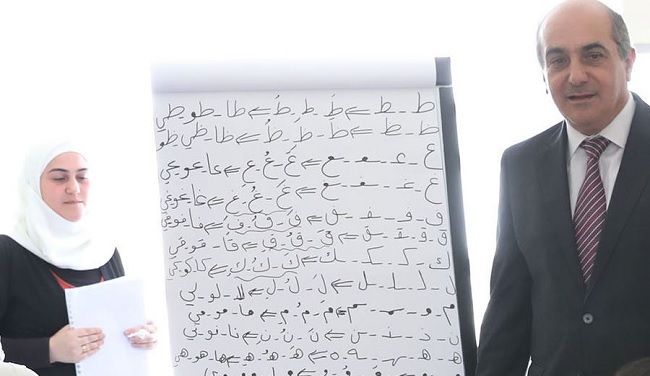 ط ـ ط ـ ط ⇐ طَ ـ طِ ـ طُ ⇐ طا ـ طو ـ طي
ظ ـ ظ ـ ظ ⇐ ظَ ـ ظِ ـ ظُ ⇐ ظا ظي ظو
ع ـ عـ ـ ـعـ ـ ـع ⇐ عَ ـ عُ ـ عِ ⇐ عا عو عي
غ ـ غـ ـ ـغـ ـ ـغ ⇐ غَ ـ غُ ـ غِ ⇐ غا غو غي
ف ـ فـ ـ ـفـ ـ ـف ⇐ فَ ـ فُ ـ فِ ⇐ فا فو في
ق ـ قـ ـ ـقـ ـ ـق ⇐ قَ ـ قُ ـ قِ ⇐ قا ـ قو قي
ك ـ كـ ـ ـكـ ـ ـك ⇐ كَ ـ كُ ـ كِ ⇐ كا كو كي
ل ـ لـ ـ ـلـ ـ ـل ⇐ لَ ـ لُ ـ لِ ⇐ لا لو لي
م ـ مـ ـ ـمـ ـ ـم ⇐ مَ ـ مِ ـ مُ ⇐ ما ـ مو مي
ن ـ نـ ـ ـنـ ـ ـن ⇐ نَ ـ نُ ـ نِ ⇐ نا ـ نو ني
ه ـ هـ ـ ـهـ ـ ـه ـ ه ⇐ هَ ـ هُ ـ هِ ⇐ ها هو هي